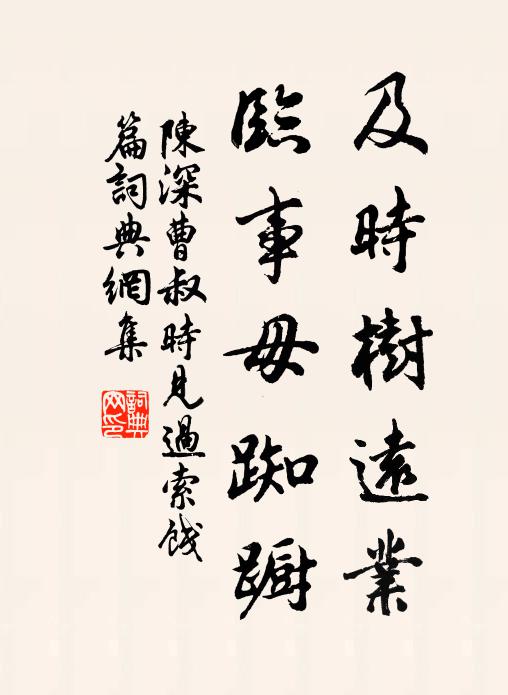 及時樹遠業
臨事毋踟躕
陳深曹叔時見過索餞
篇詞典網集
詞典
网印